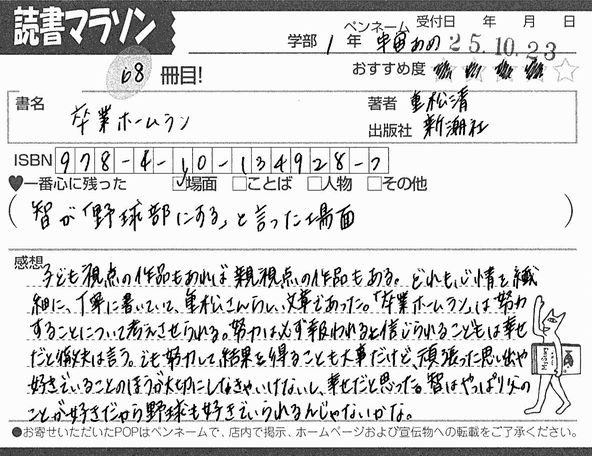 読書マラソン
学部 1年 ペンネーム 宇宙あめ 受付日 年 月 日
25.10.23
68冊目!
おすすめ度
書名 卒業ホームラン
著者 重松清
出版社 新潮社
ISBN 978-4-10-134928-2
♥一番心に残った ☑場面 □ことば □人物 □その他
(智が「野球部にする」と言った場面)
感想
子ども視点の作品もあれば親視点の作品もある。どれも心情を繊
細に、丁寧に書いていて、重松さんらしい文章であった。「卒業ホームラン」は努力
することについて考えさせられる。努力は必ず報われると信じられる子どもは幸せ
だと徹夫は言う。でも努力して結果を得ることも大事だけど、頑張った思い出や
好きでいることのほうが大切にしなきゃいけないし、幸せだと思った。智はやっぱり父の
ことが好きだから野球も好きでいられるんじゃないかな。
●お寄せいただいたPOPはペンネームで、店内で掲示、ホームページおよび宣伝物への転載をご了承ください。